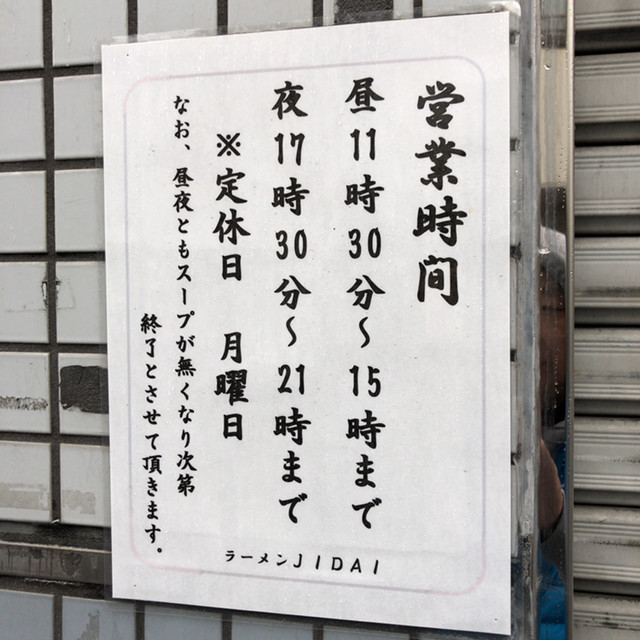 営業時間
昼11時30分～15時まで
夜17時30分～21時まで
※定休日　月曜日
なお、昼夜ともスープが無くなり次第
終了とさせて頂きます。
ラーメンJIDAI